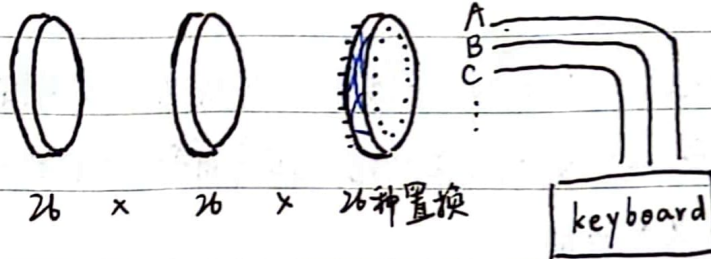 A
B
C
26 × 26 × 26种置换
keyboard